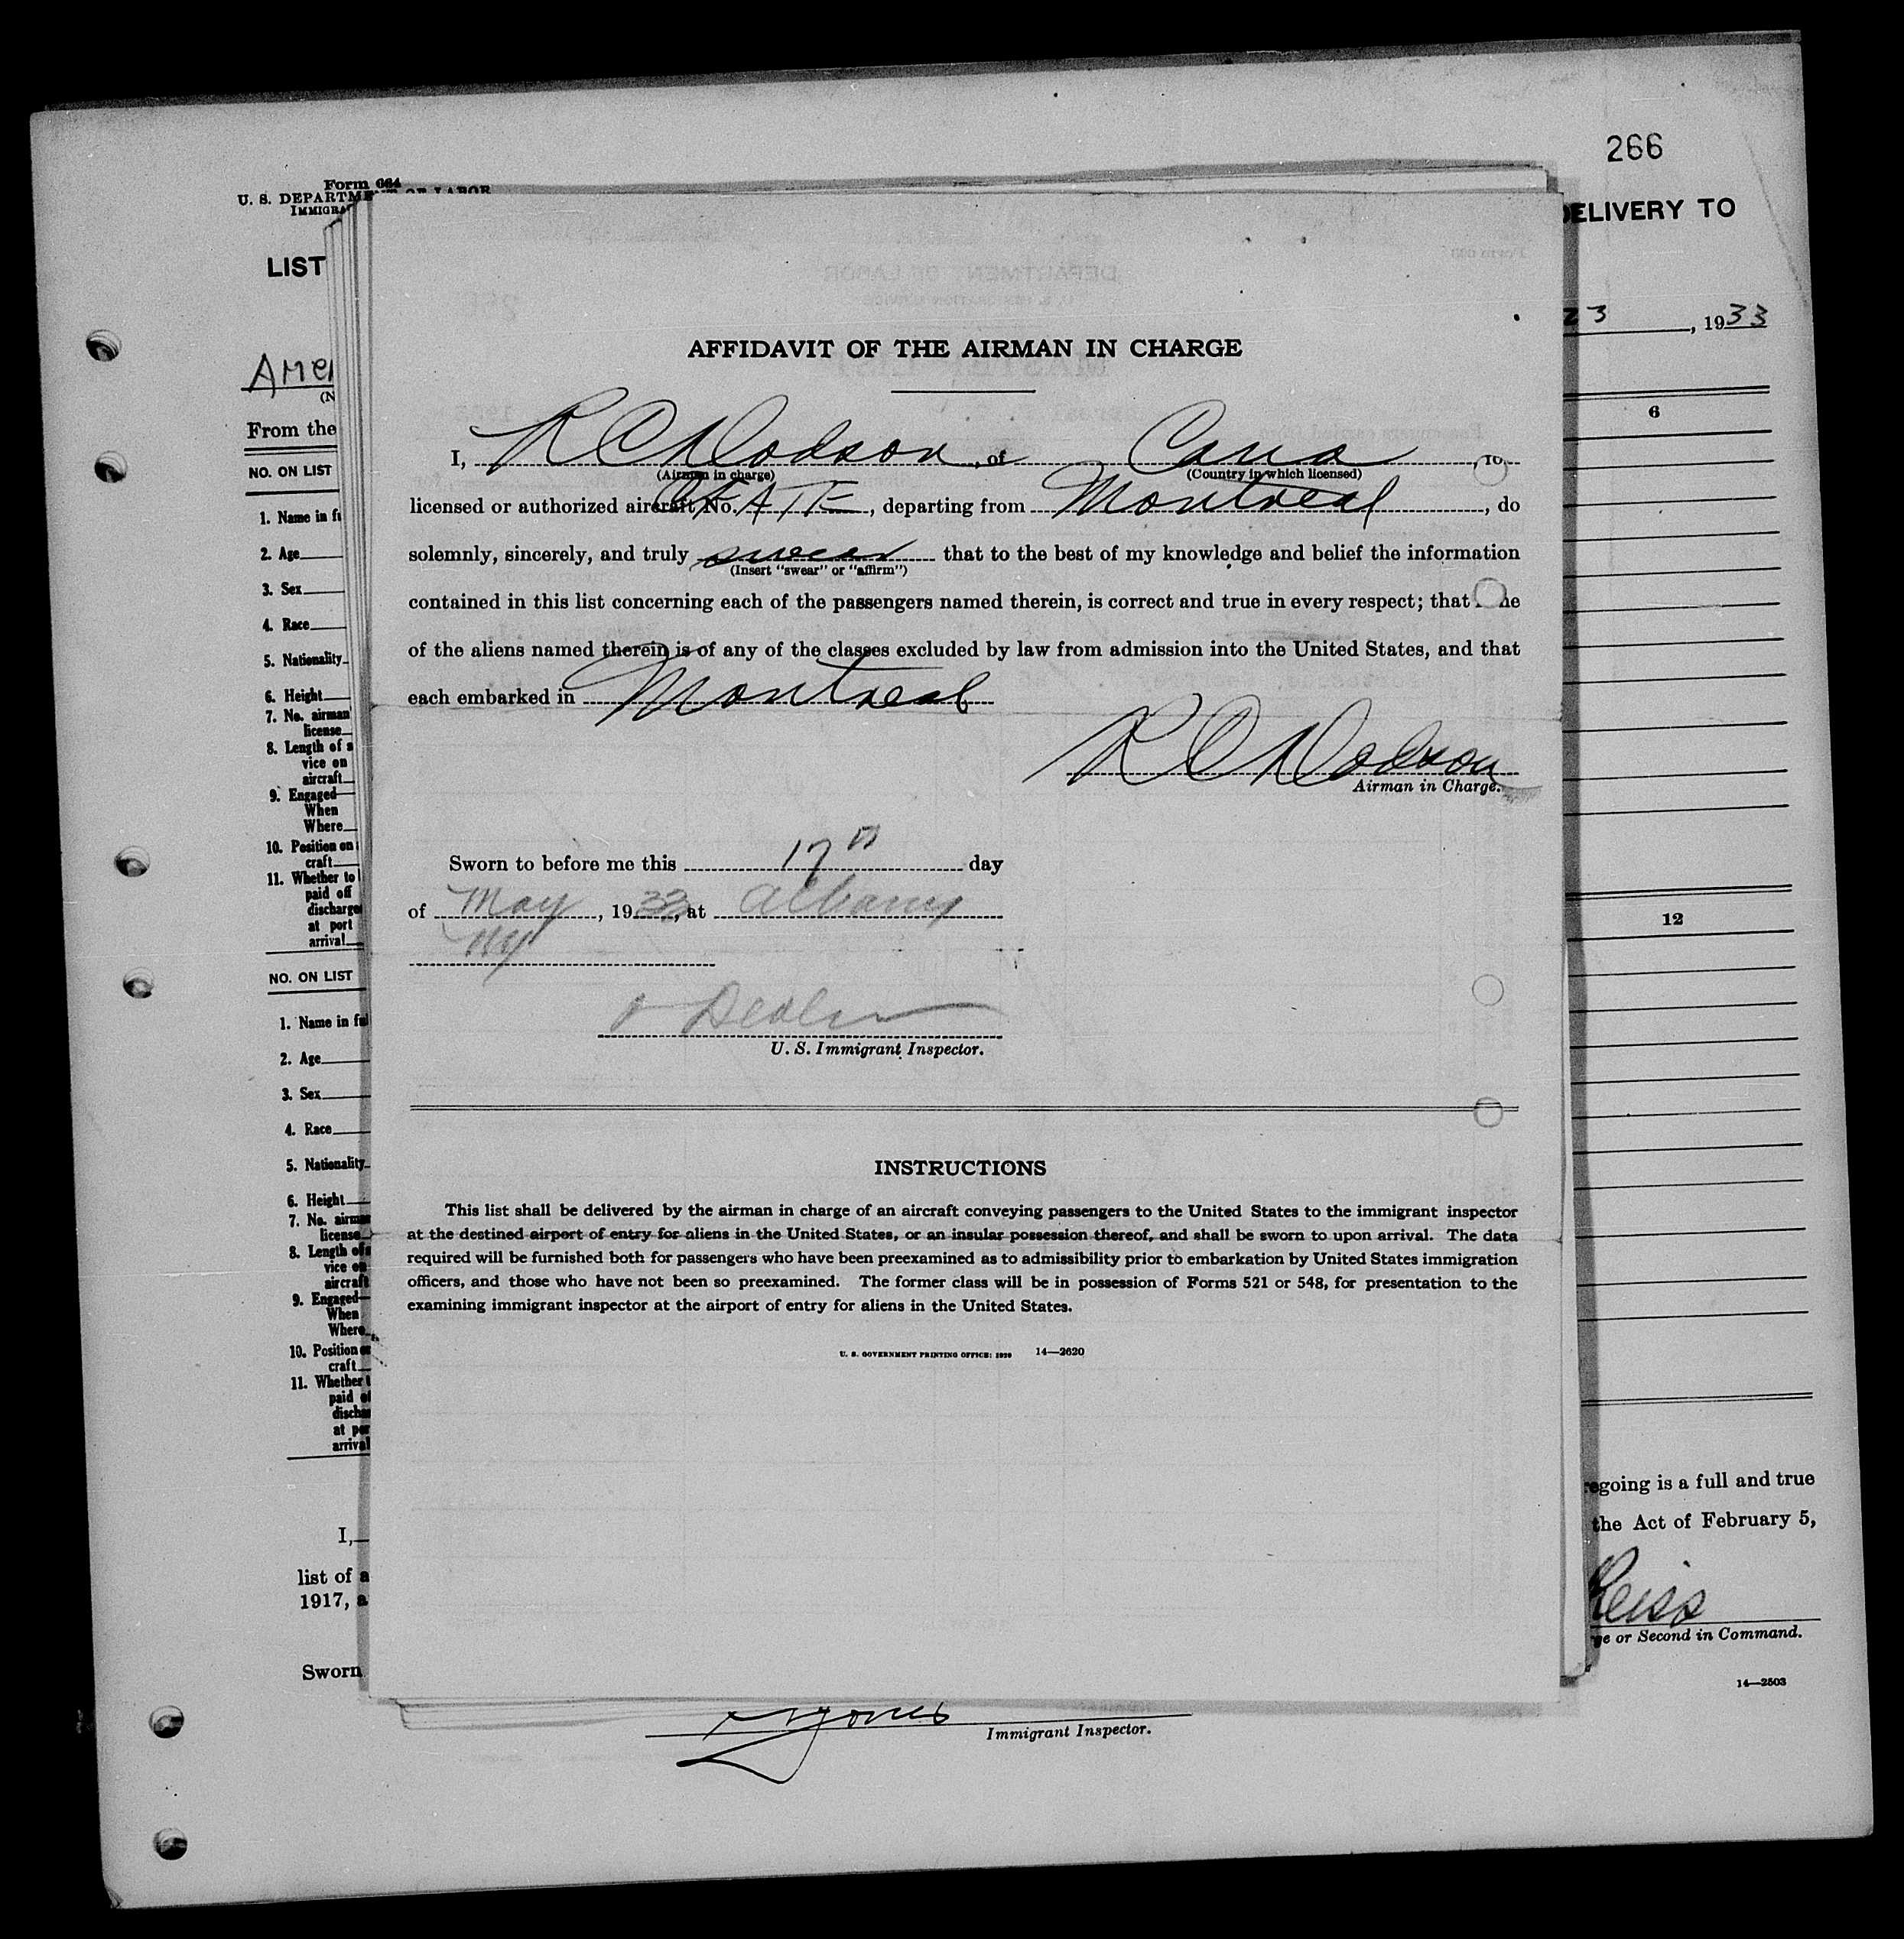 266
Form 664
U. S. DEPARTMENT OF LABOR
IMMIGRA
DELIVERY TO
LIST
23, 1933
Amer
(N
From the
6
NO. ON LIST
1. Name in fu
2. Age
3. Sex
4. Race
5. Nationality
6. Height
7. No. airman
license
8. Length of s
vice on
aircraft
9. Engaged
When
Where
10. Position on
craft
11. Whether to
paid off
discharge
at port
arrival
12
NO. ON LIST
1. Name in ful
2. Age
3. Sex
4. Race
5. Nationality
6. Height
7. No. airman
license
8. Length of s
vice on
aircraft
9. Engaged
When
Where
10. Position on
craft
11. Whether t
paid of
discha
at por
arrival
I,
list of a
1917, a
Sworn
AFFIDAVIT OF THE AIRMAN IN CHARGE
I, R C Dodson, of Cana, to
(Airman in charge) (Country in which licensed)
licensed or authorized aircraft No. CFATE, departing from Montreal, do
solemnly, sincerely, and truly swear that to the best of my knowledge and belief the information
(Insert "swear" or "affirm")
contained in this list concerning each of the passengers named therein, is correct and true in every respect; that ne
of the aliens named therein is of any of the classes excluded by law from admission into the United States, and that
each embarked in Montreal
R C Dodson
Airman in Charge.
Sworn to before me this 17th day
of May, 1933, at Albany
NY
U. S. Immigrant Inspector.
INSTRUCTIONS
This list shall be delivered by the airman in charge of an aircraft conveying passengers to the United States to the immigrant inspector
at the destined airport of entry for aliens in the United States, or an insular possession thereof, and shall be sworn to upon arrival. The data
required will be furnished both for passengers who have been preexamined as to admissibility prior to embarkation by United States immigration
officers, and those who have not been so preexamined. The former class will be in possession of Forms 521 or 548, for presentation to the
examining immigrant inspector at the airport of entry for aliens in the United States.
U. S. GOVERNMENT PRINTING OFFICE: 1929 14—2620
egoing is a full and true
the Act of February 5,
Reiss
ge or Second in Command.
14—2503
Jones
Immigrant Inspector.